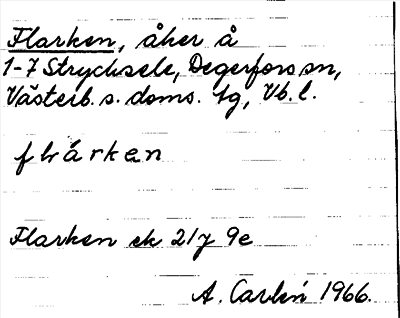 Flarken, åker å
1-7 Strycksele, Degerfors sn,
Västerb. s. doms. tg, Vb. l.
flárken
Flarken ek 21 J 9e
A. Carlén 1966.